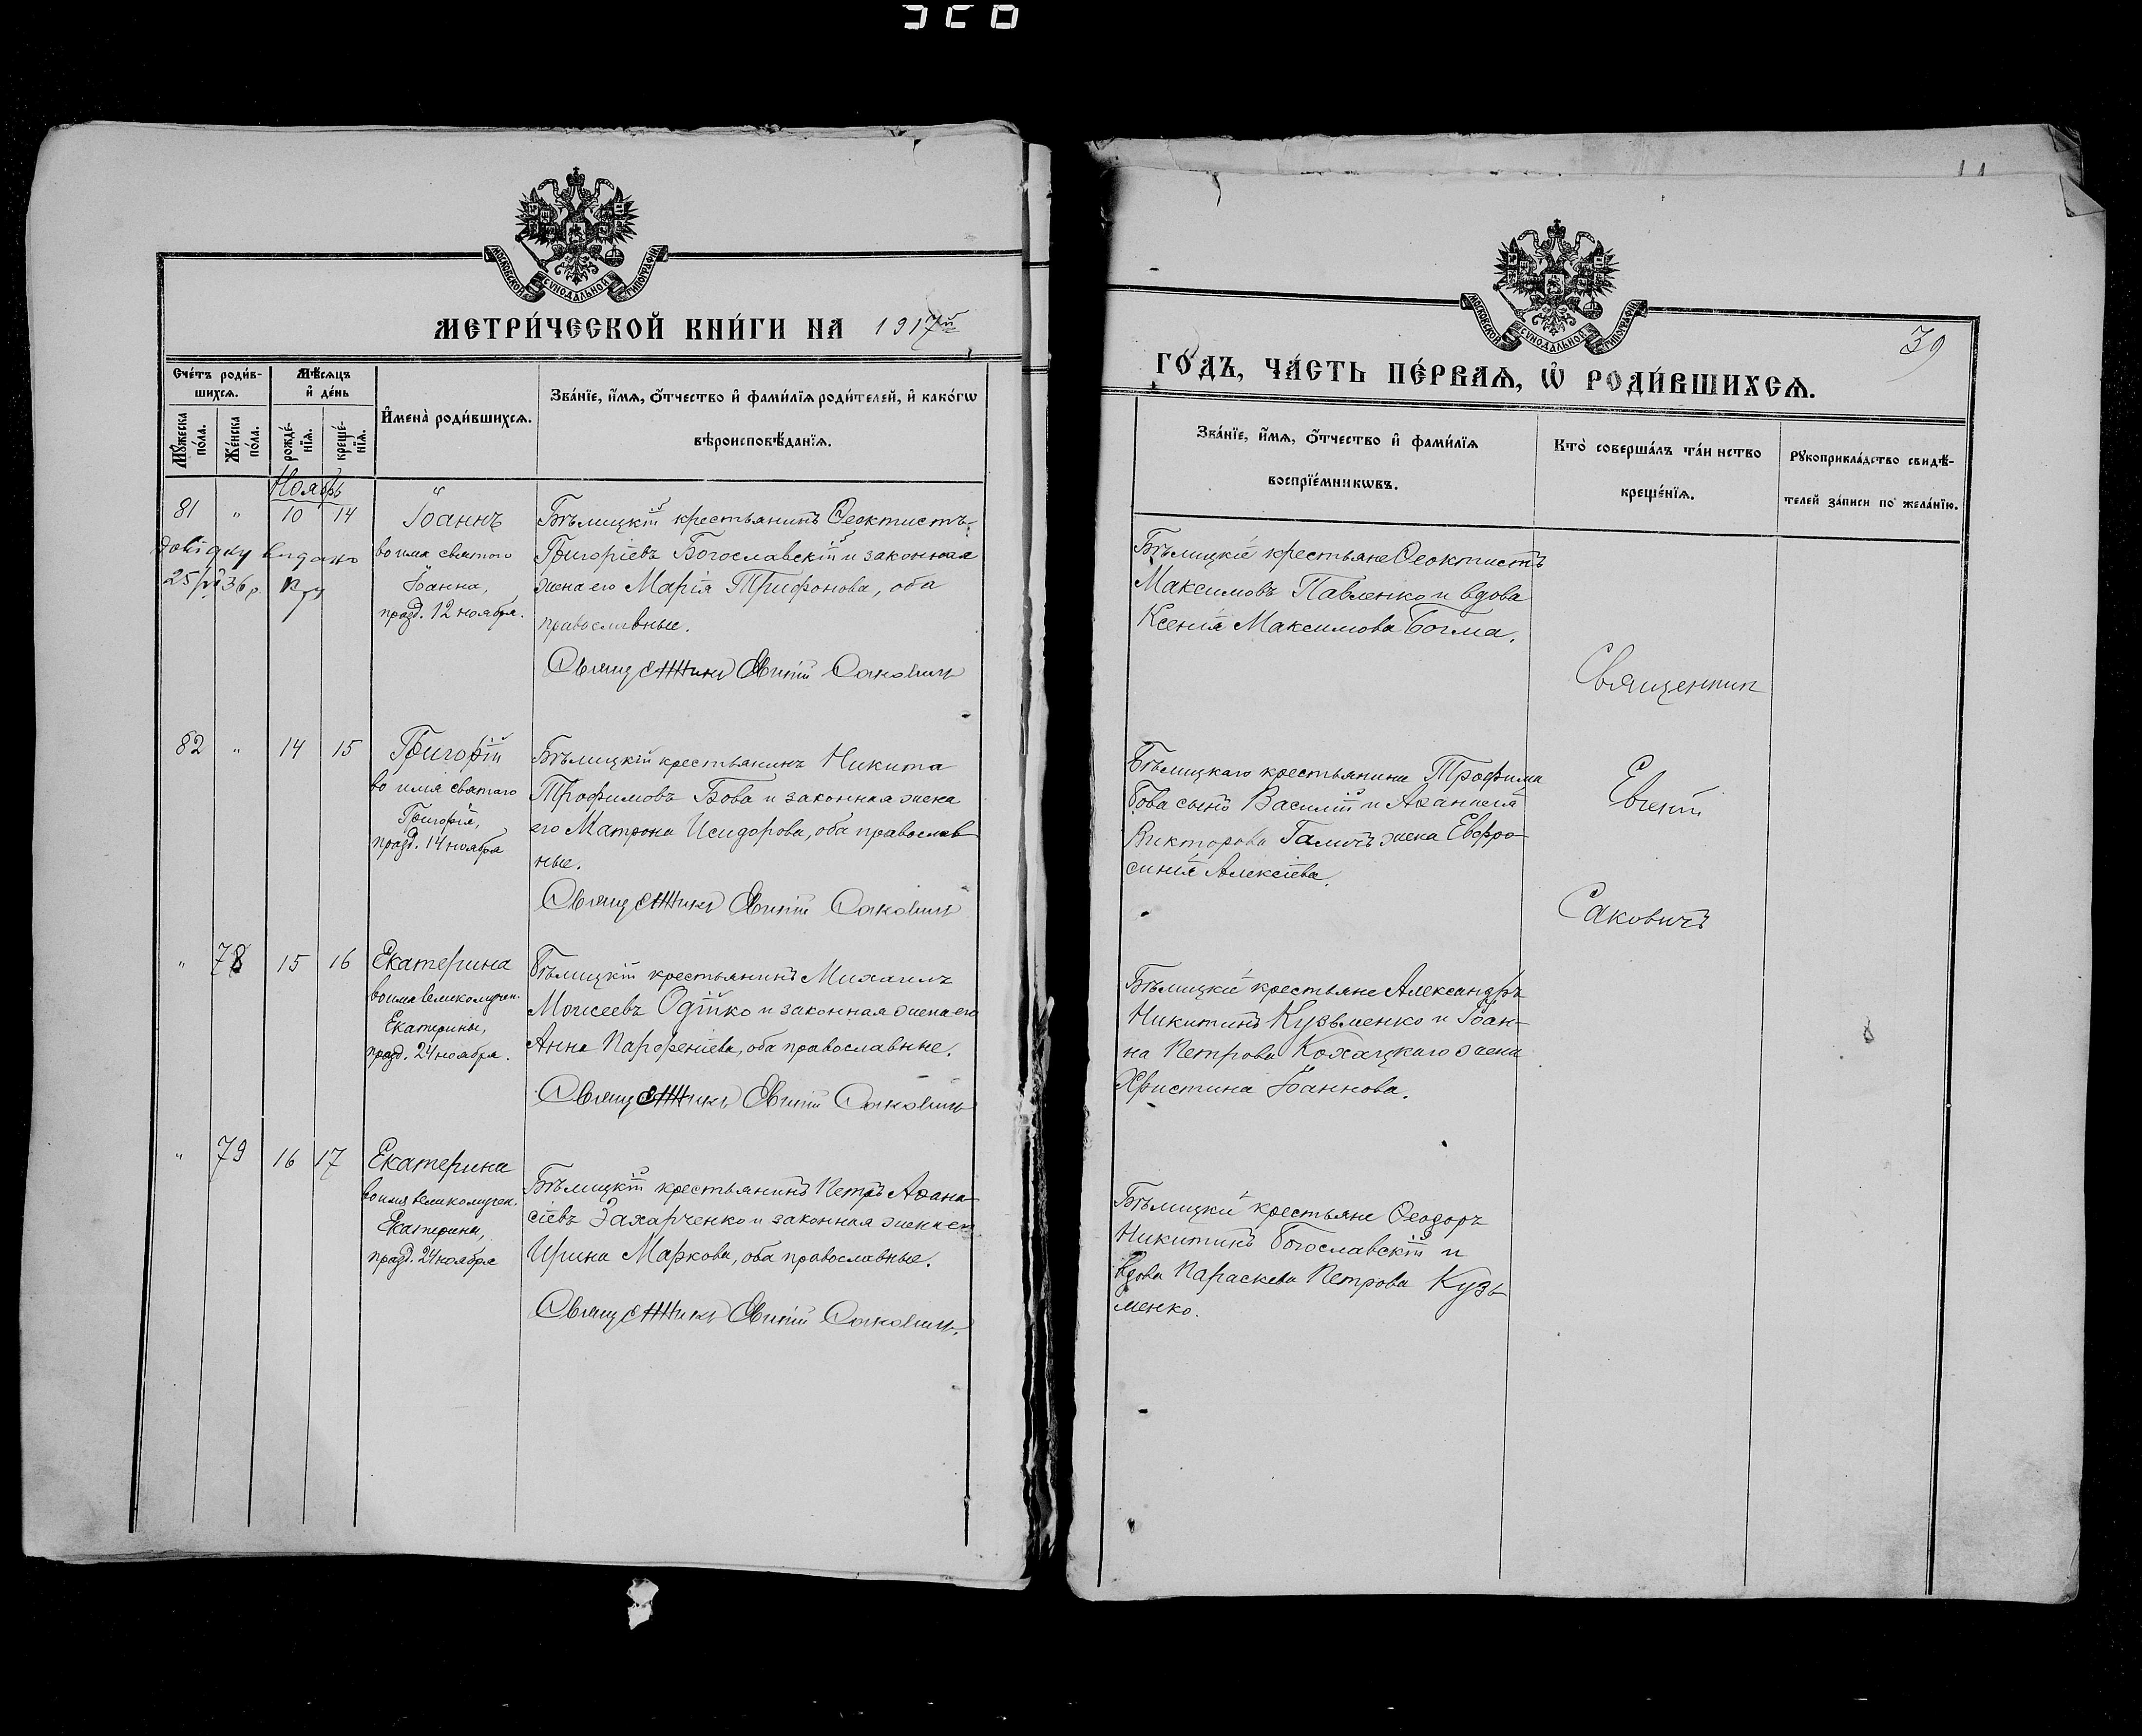 МОСКОВСКОЙ СѴНОДАЛЬНОЙ ТИПОГРАФІИ
МЕТРИ́ЧЕСКОЙ КНИ́ГИ НА 1917й
Сче́тъ роди́в-
шихсѧ.
Мѣ́сѧцъ
и҆ де́нь
И҆мена̀ роди́вшихсѧ.
Зва́нїе, и҆́мѧ, ѻ҆́тчество и҆ фами́лїѧ роди́телей, и҆ како́гѡ
вѣроисповѣ́данїѧ.
Мꙋ́жеска
по́ла.
Же́нска
по́ла.
рожде́-
нїѧ.
креще́-
нїѧ.
Ноябрь
81 " 10 14
Іоаннъ
во имя святого
Іоанна,
празд. 12 ноября.
Бѣлицкій крестьянинъ Ѳеоктистъ
Григоріевъ Богославскій и законная
жена его Марія Трифонова, оба
православные.
Священникъ Евѳимій Саковичъ
82 " 14 15
Григорій
во имя святаго
Григорія,
празд. 14 ноября
Бѣлицкій крестьянинъ Никита
Трофимовъ Бова и законная жена
его Матрона Исидорова, оба православ-
ные.
Священникъ Евѳимій Саковичъ
" 78 15 16
Екатерина
во имя великомучен.
Екатерины,
празд. 24 ноября.
Бѣлицкій крестьянинъ Михаилъ
Моисеевъ Одійко и законная жена его
Анна Парфеніева, оба православные.
Священникъ Евѳимій Саковичъ
" 79 16 17
Екатерина
во имя великомучен.
Екатерины,
празд. 24 ноября
Бѣлицкій крестьянинъ Петръ Аѳана-
сіевъ Захарченко и законная жена его
Ирина Маркова, оба православные.
Священникъ Евѳимій Саковичъ.
МОСКОВСКОЙ СѴНОДАЛЬНОЙ ТИПОГРАФІИ
39
ГО́ДЪ, ЧА́СТЬ ПЕ́РВАѦ, Ѡ҆ РОДИ́ВШИХСѦ.
Зва́нїе, и҆́мѧ, ѻ҆́тчество и҆ фами́лїѧ
воспрїе́мникѡвъ.
Кто̀ соверша́лъ та́инство
креще́нїѧ.
Рꙋкоприкла́дство свидѣ́-
телей за́писи по жела́нїю.
Бѣлицкіе крестьяне Ѳеоктистъ
Максимовъ Павленко и вдова
Ксенія Максимова Богма.
Священник
Бѣлицкаго крестьянина Трофима
Бова сынъ Василій и Аѳанасія
Викторова Галичъ жена Евфро-
синія Алексіева.
Евѳимій
Саковичъ
Бѣлицкіе крестьяне Александръ
Никитинъ Кузьменко и Іоан-
на Петрова Кохацкаго жена
Христина Іоаннова.
Бѣлицкіе крестьяне Ѳеодоръ
Никитинъ Богославскій и
вдова Параскева Петрова Кузь-
менко.